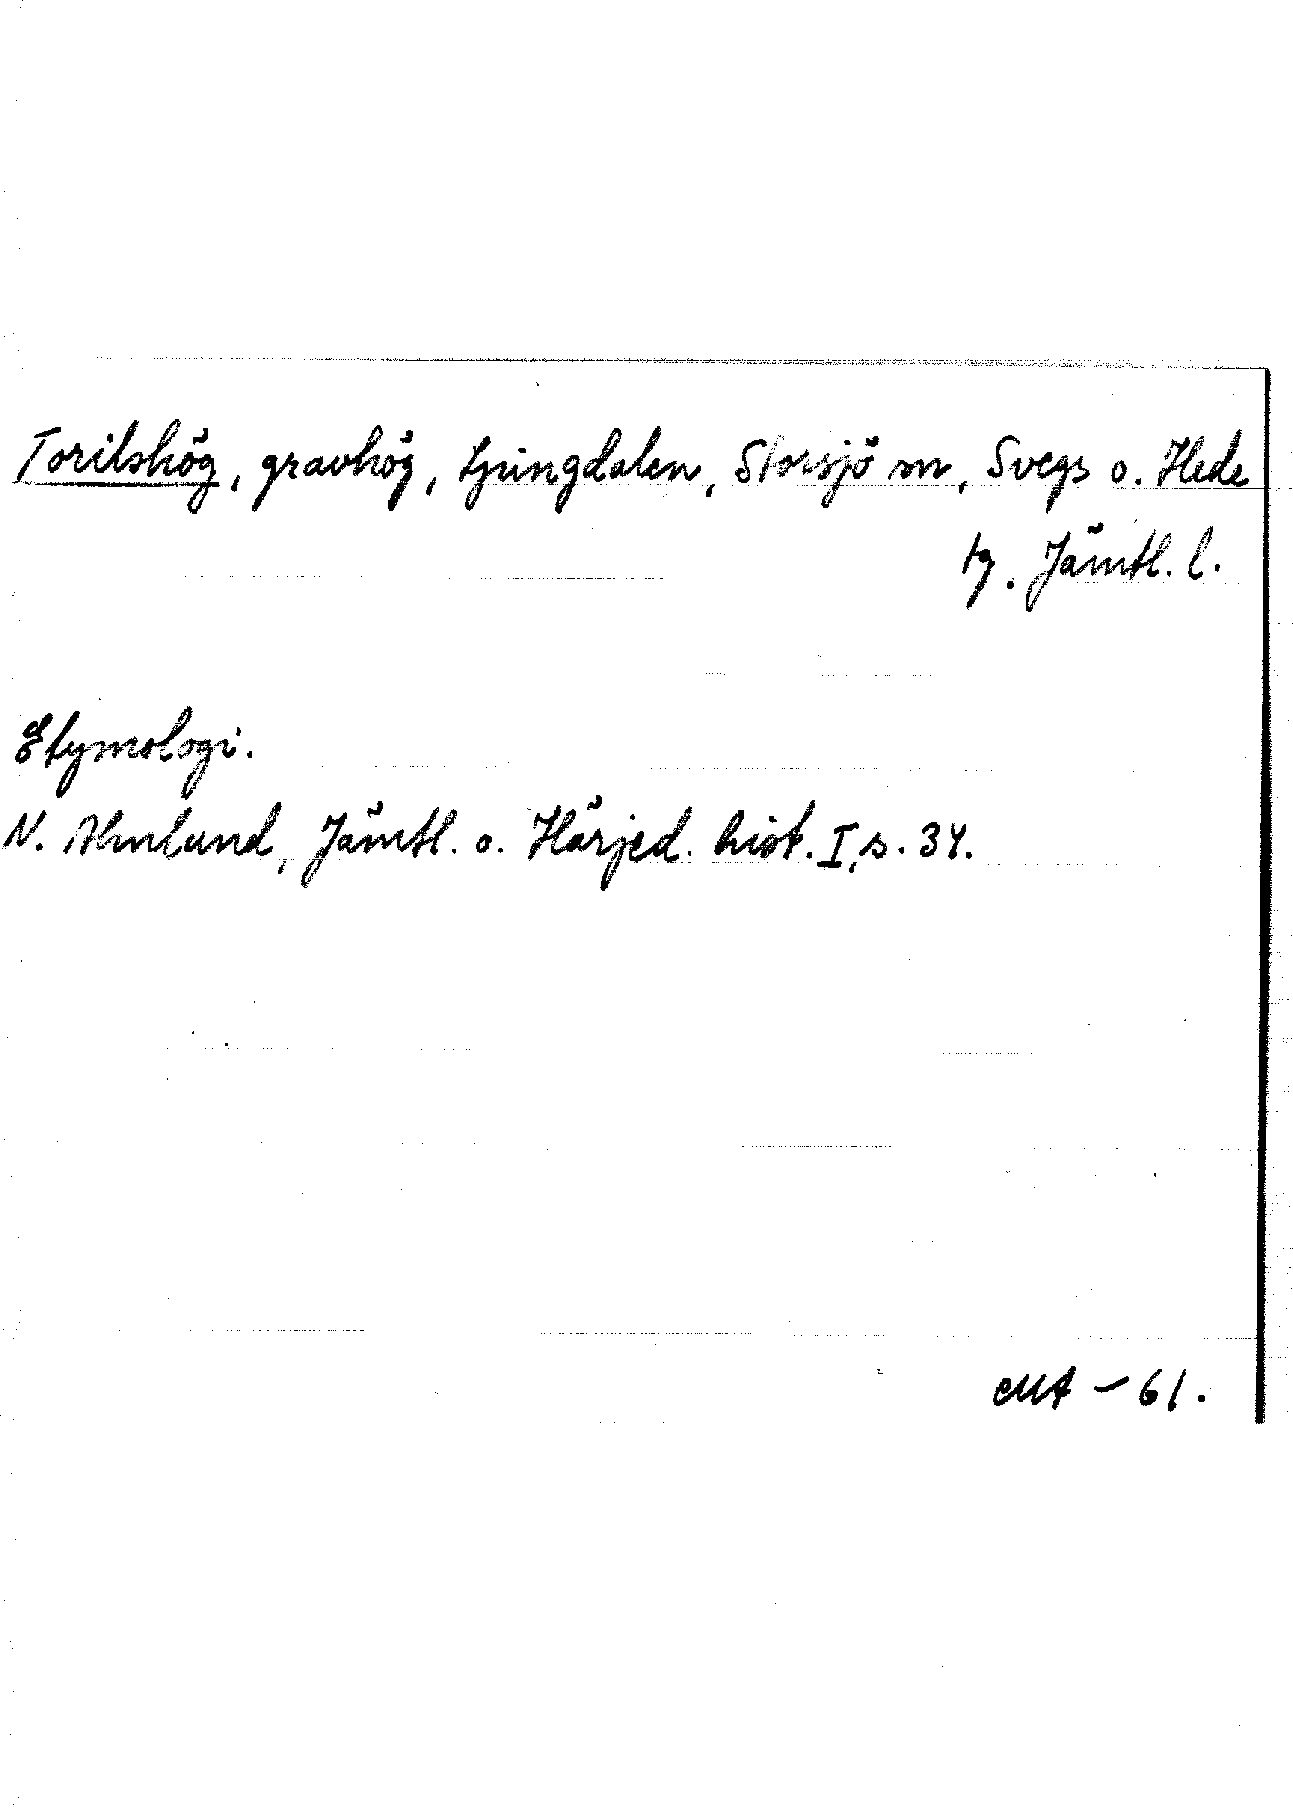 Torilshög, gravhög, Ljungdalen, Storsjö sn, Svegs o. Hede
tg. Jämtl. l.
Etymologi.
N. Ahnlund, Jämtl. o. Härjed. hist. I, s. 34.
MA - 61.